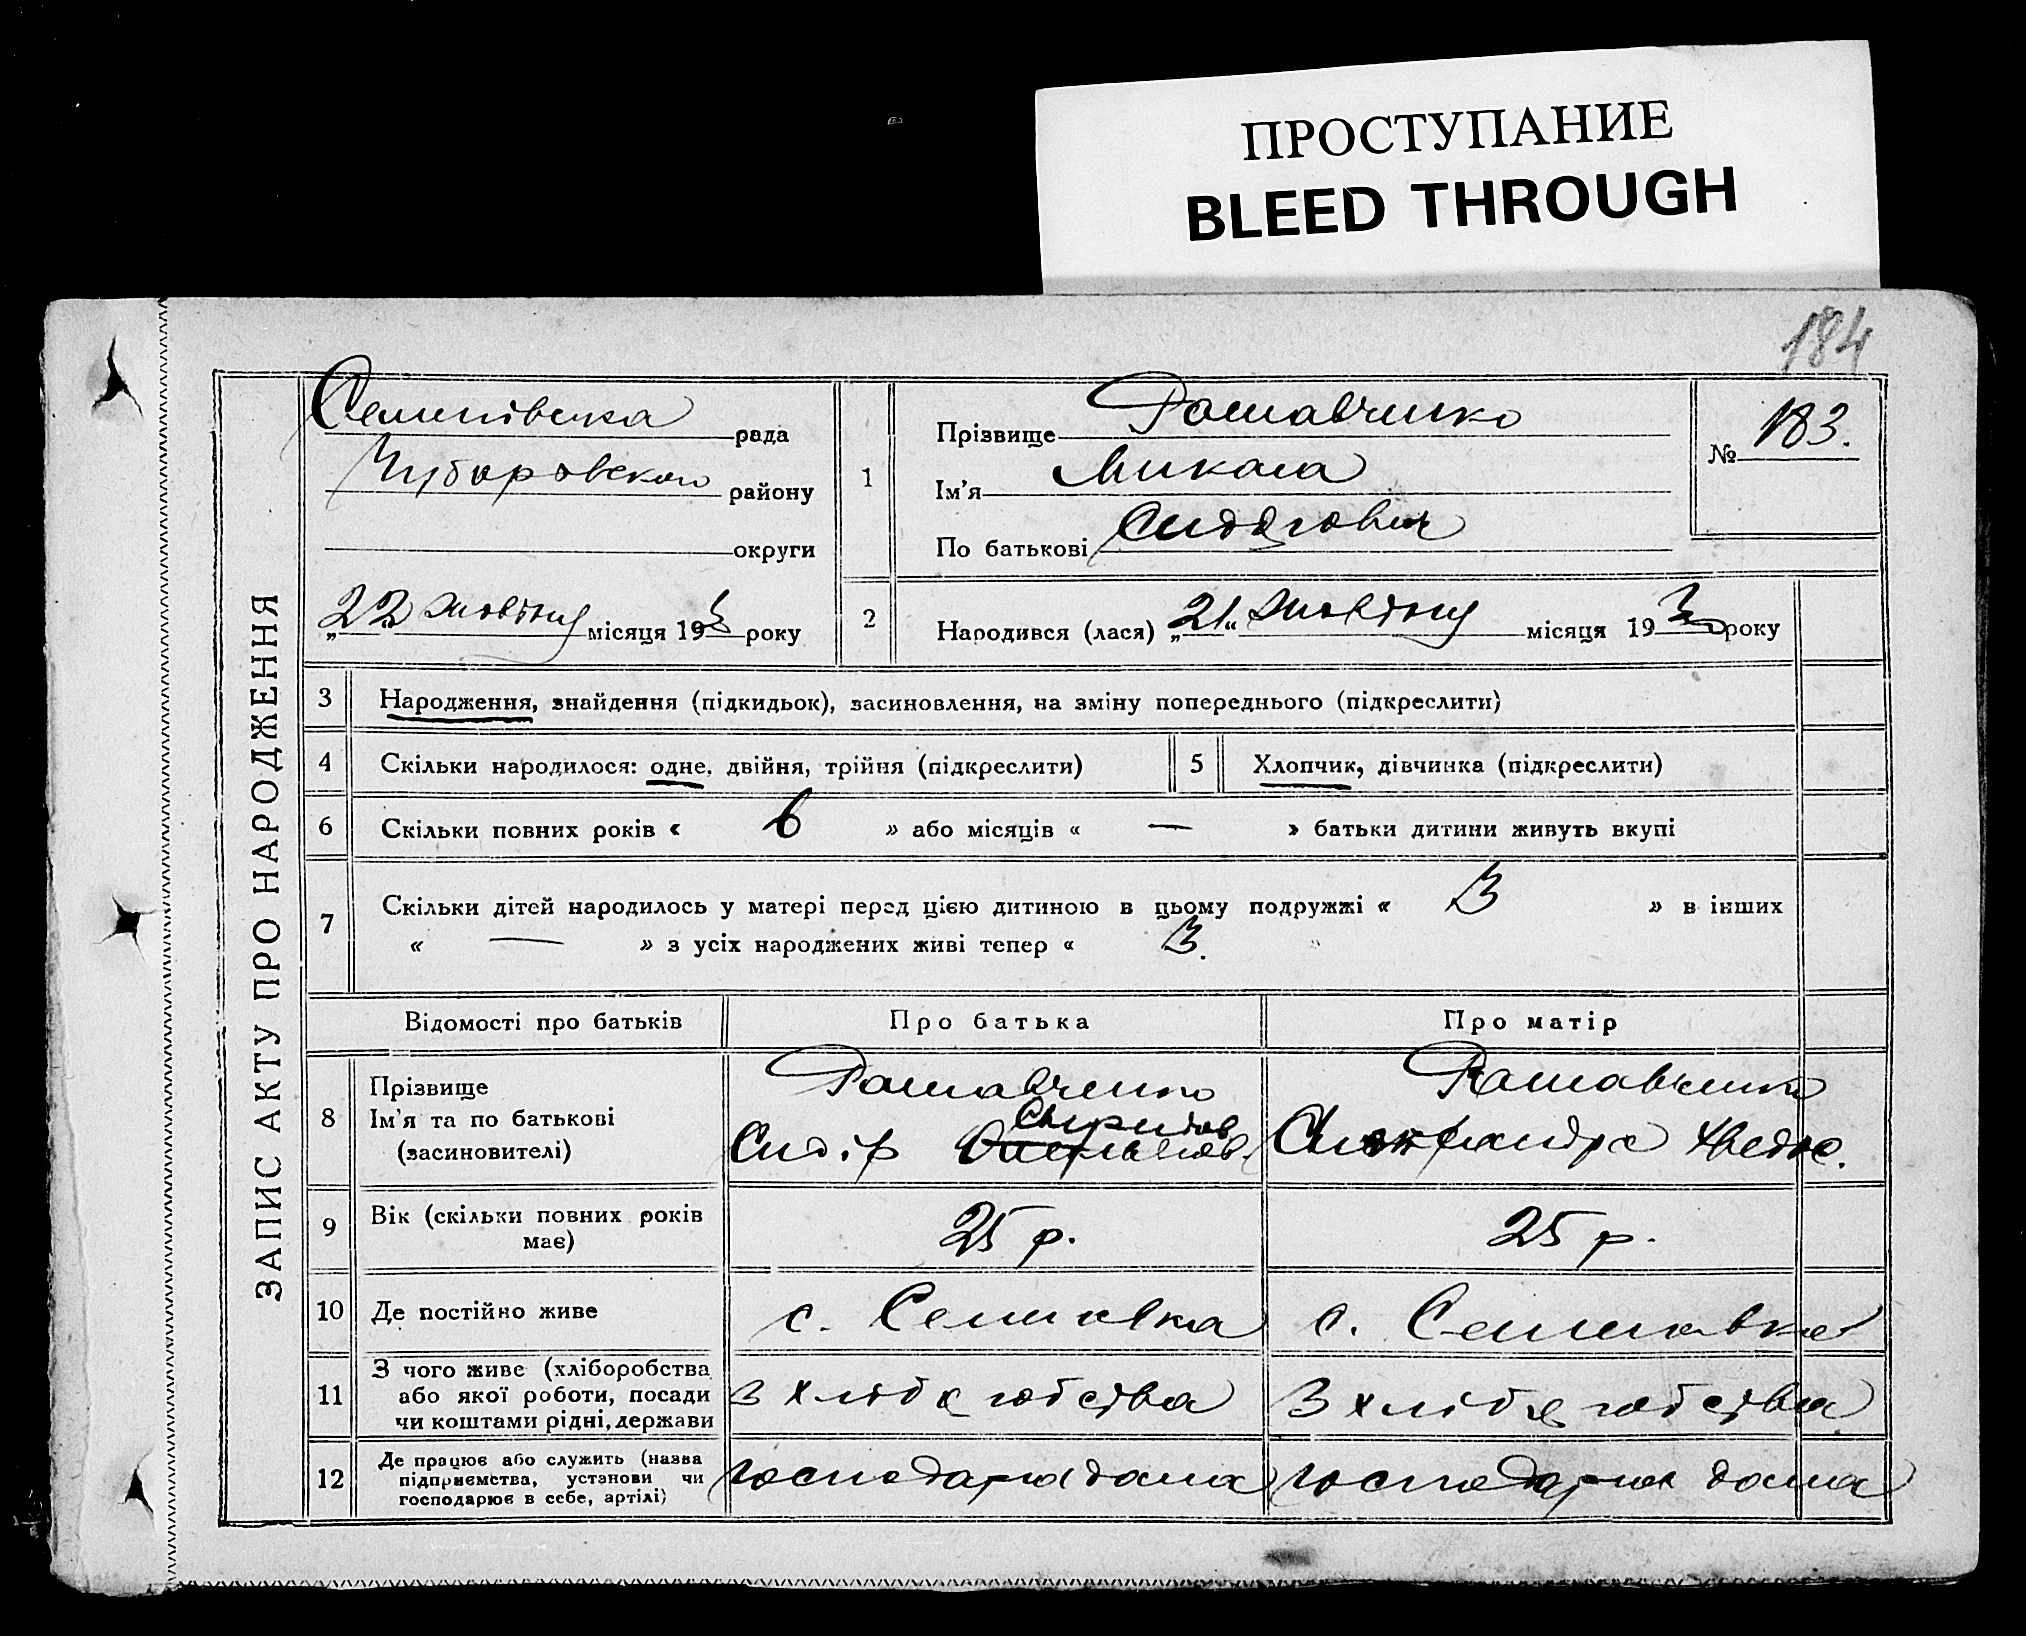 ПРОСТУПАНИЕ
BLEED THROUGH
184
ЗАПИС АКТУ ПРО НАРОДЖЕННЯ
Семенівська рада
району
округи
„22" жовтня місяця 193 року
1
Прізвище Ромавченко
Ім'я Микола
По батькові Сидорович
№ 183.
2
Народився (лася) „21" жовтня місяця 193 року
3 Народження, знайдення (підкидьок), засиновлення, на зміну попереднього (підкреслити)
4 Скільки народилося: одне, двійня, трійня (підкреслити)
5 Хлопчик, дівчинка (підкреслити)
6 Скільки повних років « 6 » або місяців « — » батьки дитини живуть вкупі
7 Скільки дітей народилось у матері перед цією дитиною в цьому подружжі « 3 » в інших
« — » з усіх народжених живі тепер « 3. »
Відомості про батьків Про батька Про матір
8 Прізвище
Ім'я та по батькові
(засиновителі)
Ромавченко
Сидір
Ромавченко
Олександра
9 Вік (скільки повних років
має)
25 р. 25 р.
10 Де постійно живе с. с.
11 З чого живе (хліборобства
або якої роботи, посади
чи коштами рідні, держави
з хліборобства З хліборобства
12 Де працює або служить (назва
підприємства, установи чи
господарює в себе, артілі)
дома дома